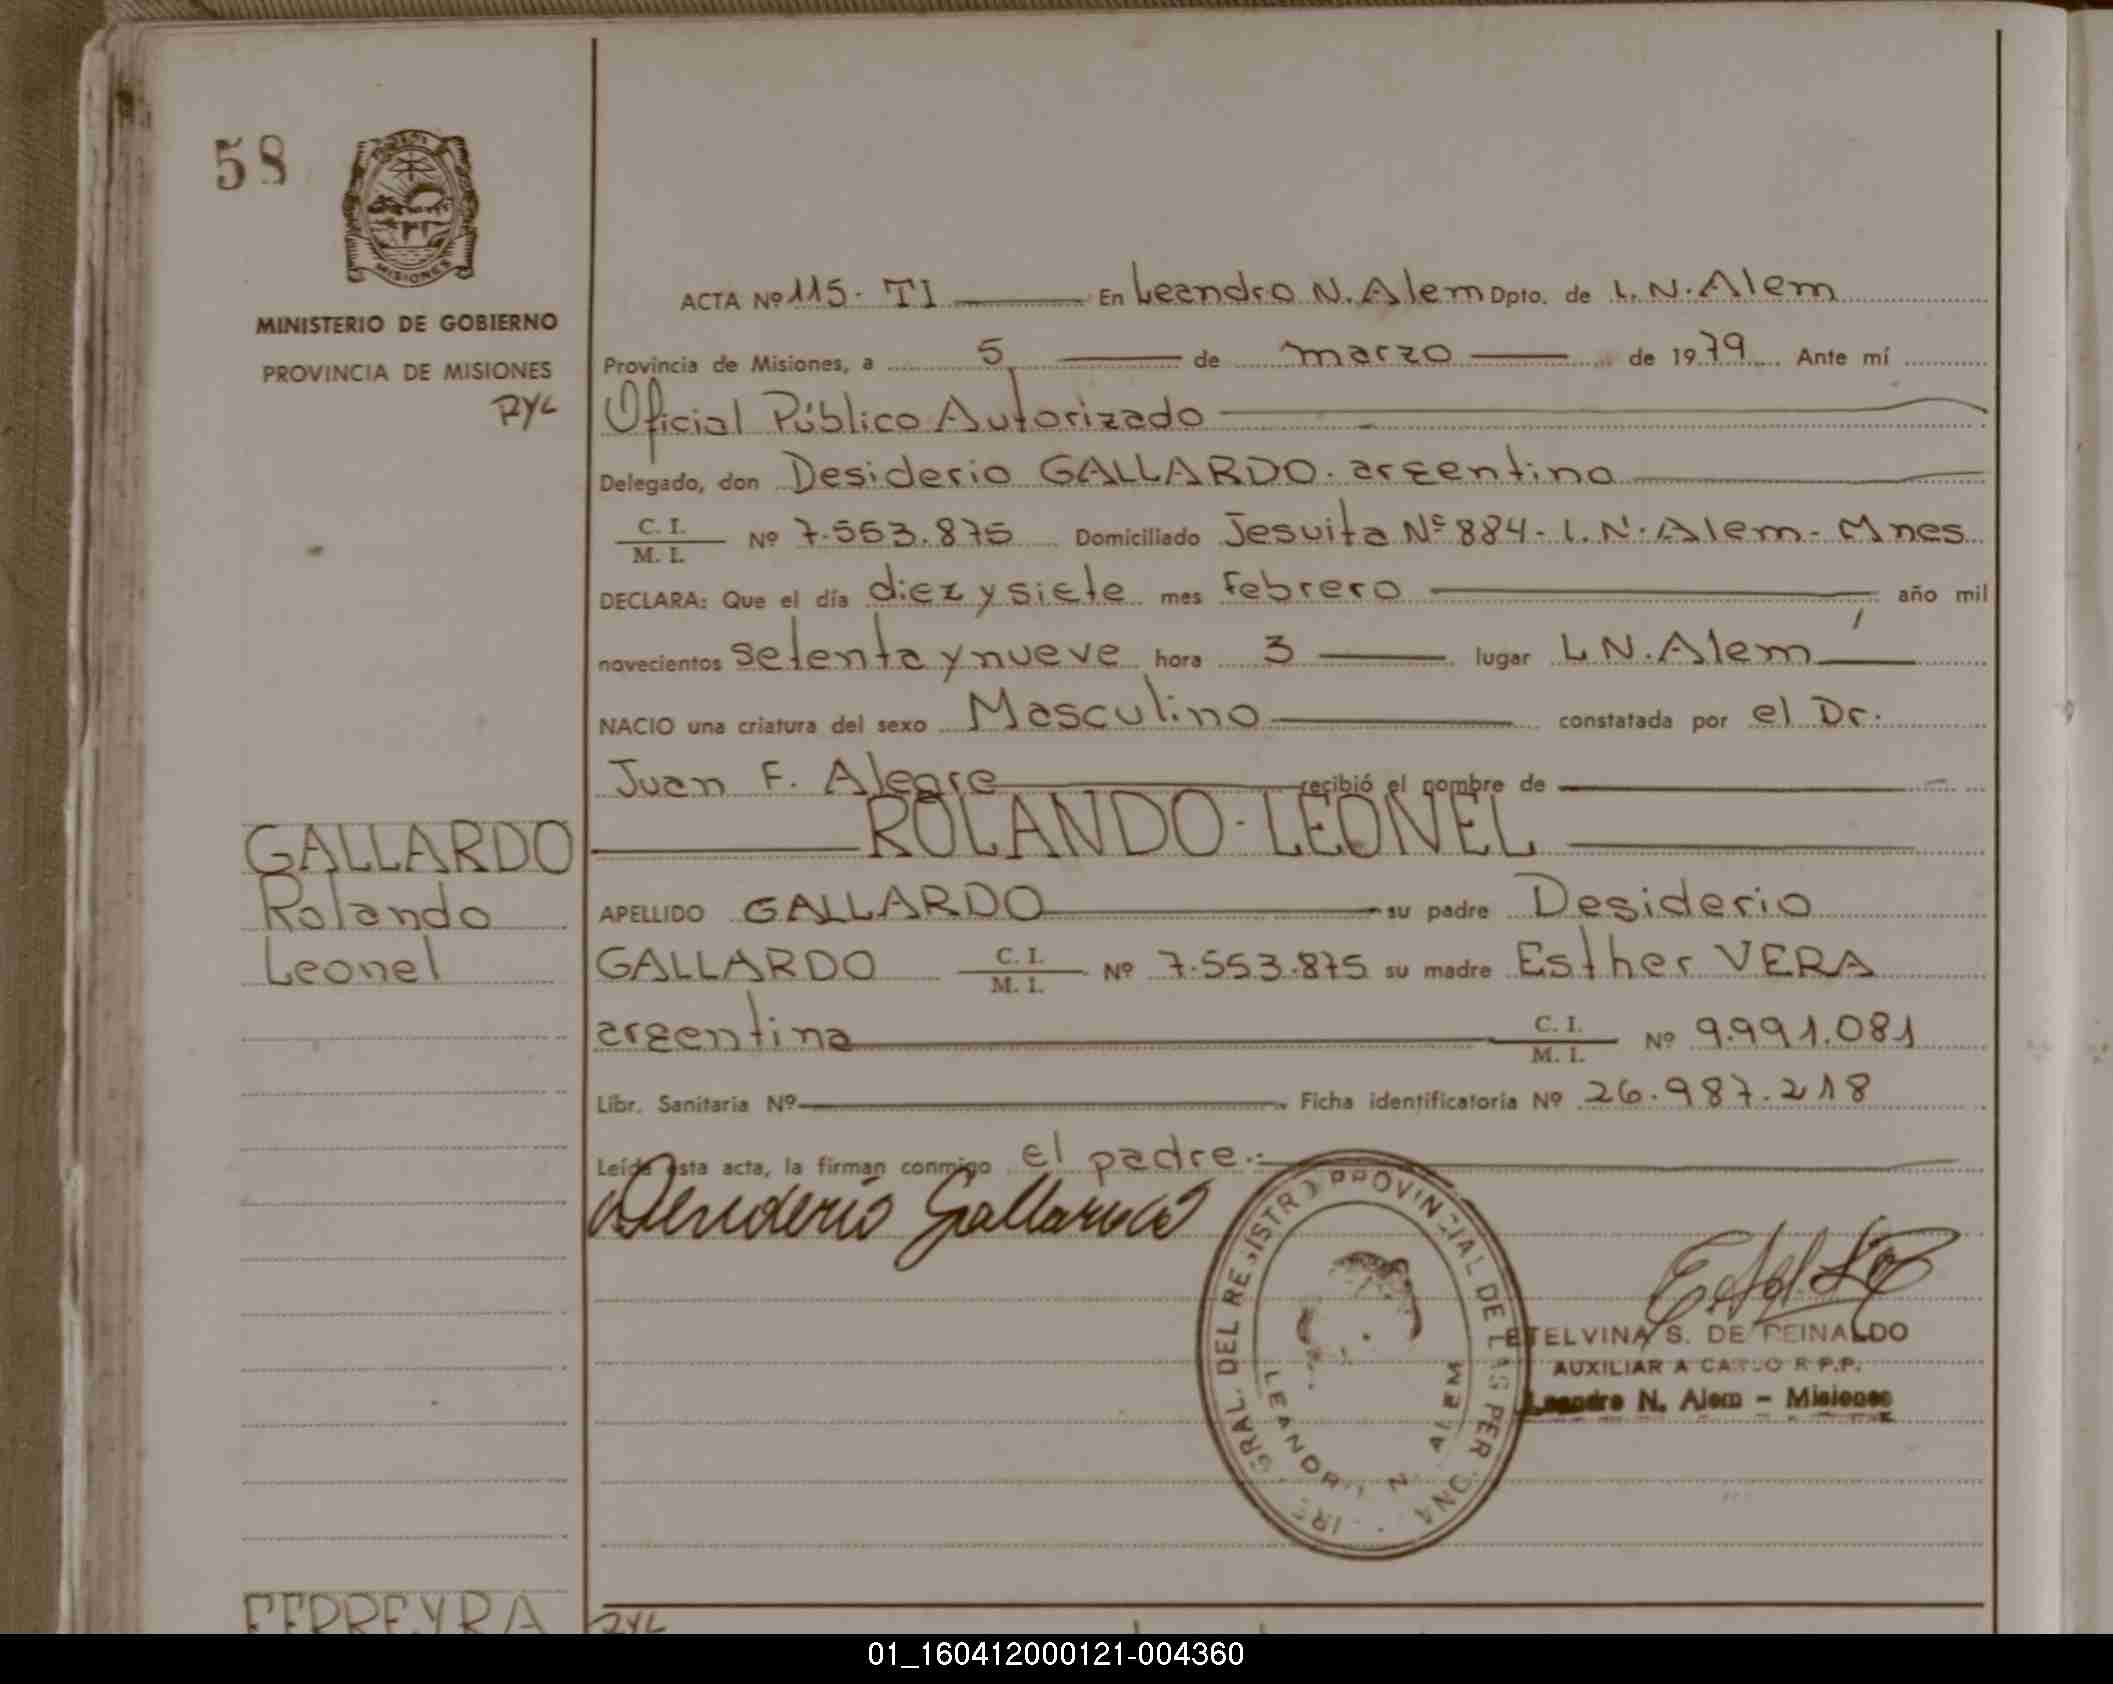 58
MISIONES
MINISTERIO DE GOBIERNO
PROVINCIA DE MISIONES
RYL
GALLARDO
Rolando
Leonel
FERREYRA
ACTA Nº 115. TI En Leandro N. Alem Dpto. de L. N. Alem
Provincia de Misiones, a 5 de marzo de 1979 Ante mí
Oficial Público Autorizado
Delegado, don Desiderio GALLARDO. argentino
C. I.
M. I. Nº 7.553.875 Domiciliado Jesuita Nº 884 - L. N. Alem - Mnes
DECLARA: Que el día diez y siete mes febrero año mil
novecientos setenta y nueve hora 3 lugar L N. Alem
NACIO una criatura del sexo Masculino constatada por el Dr.
Juan F. Alegre recibió el nombre de
ROLANDO - LEONEL
APELLIDO GALLARDO su padre Desiderio
GALLARDO C. I.
M. I. Nº 7.553.875 su madre Esther VERA
argentina C. I.
M. I. Nº 9.991.081
Libr. Sanitaria Nº Ficha identificatoria Nº 26.987.218
Leída esta acta, la firman conmigo el padre.:
Desiderio Gallardo
GRAL. DEL REGISTRO PROVINCIAL DE LAS PERSONAS
LEANDRO N. ALEM
ETELVINA S. DE REINALDO
AUXILIAR A CARGO R.P.P.
Leandro N. Alem - Misiones
RYL
01_160412000121-004360